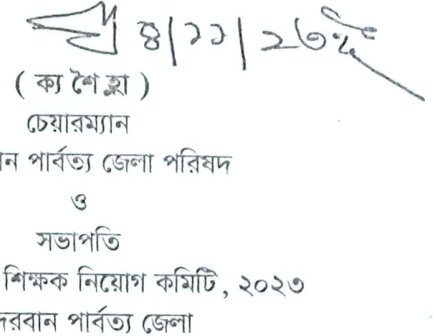 ৪|১১|২৩ইং
( ক্য শৈ হ্লা )
চেয়ারম্যান
ন পার্বত্য জেলা পরিষদ
ও
সভাপতি
শিক্ষক নিয়োগ কমিটি, ২০২৩
দরবান পার্বত্য জেলা